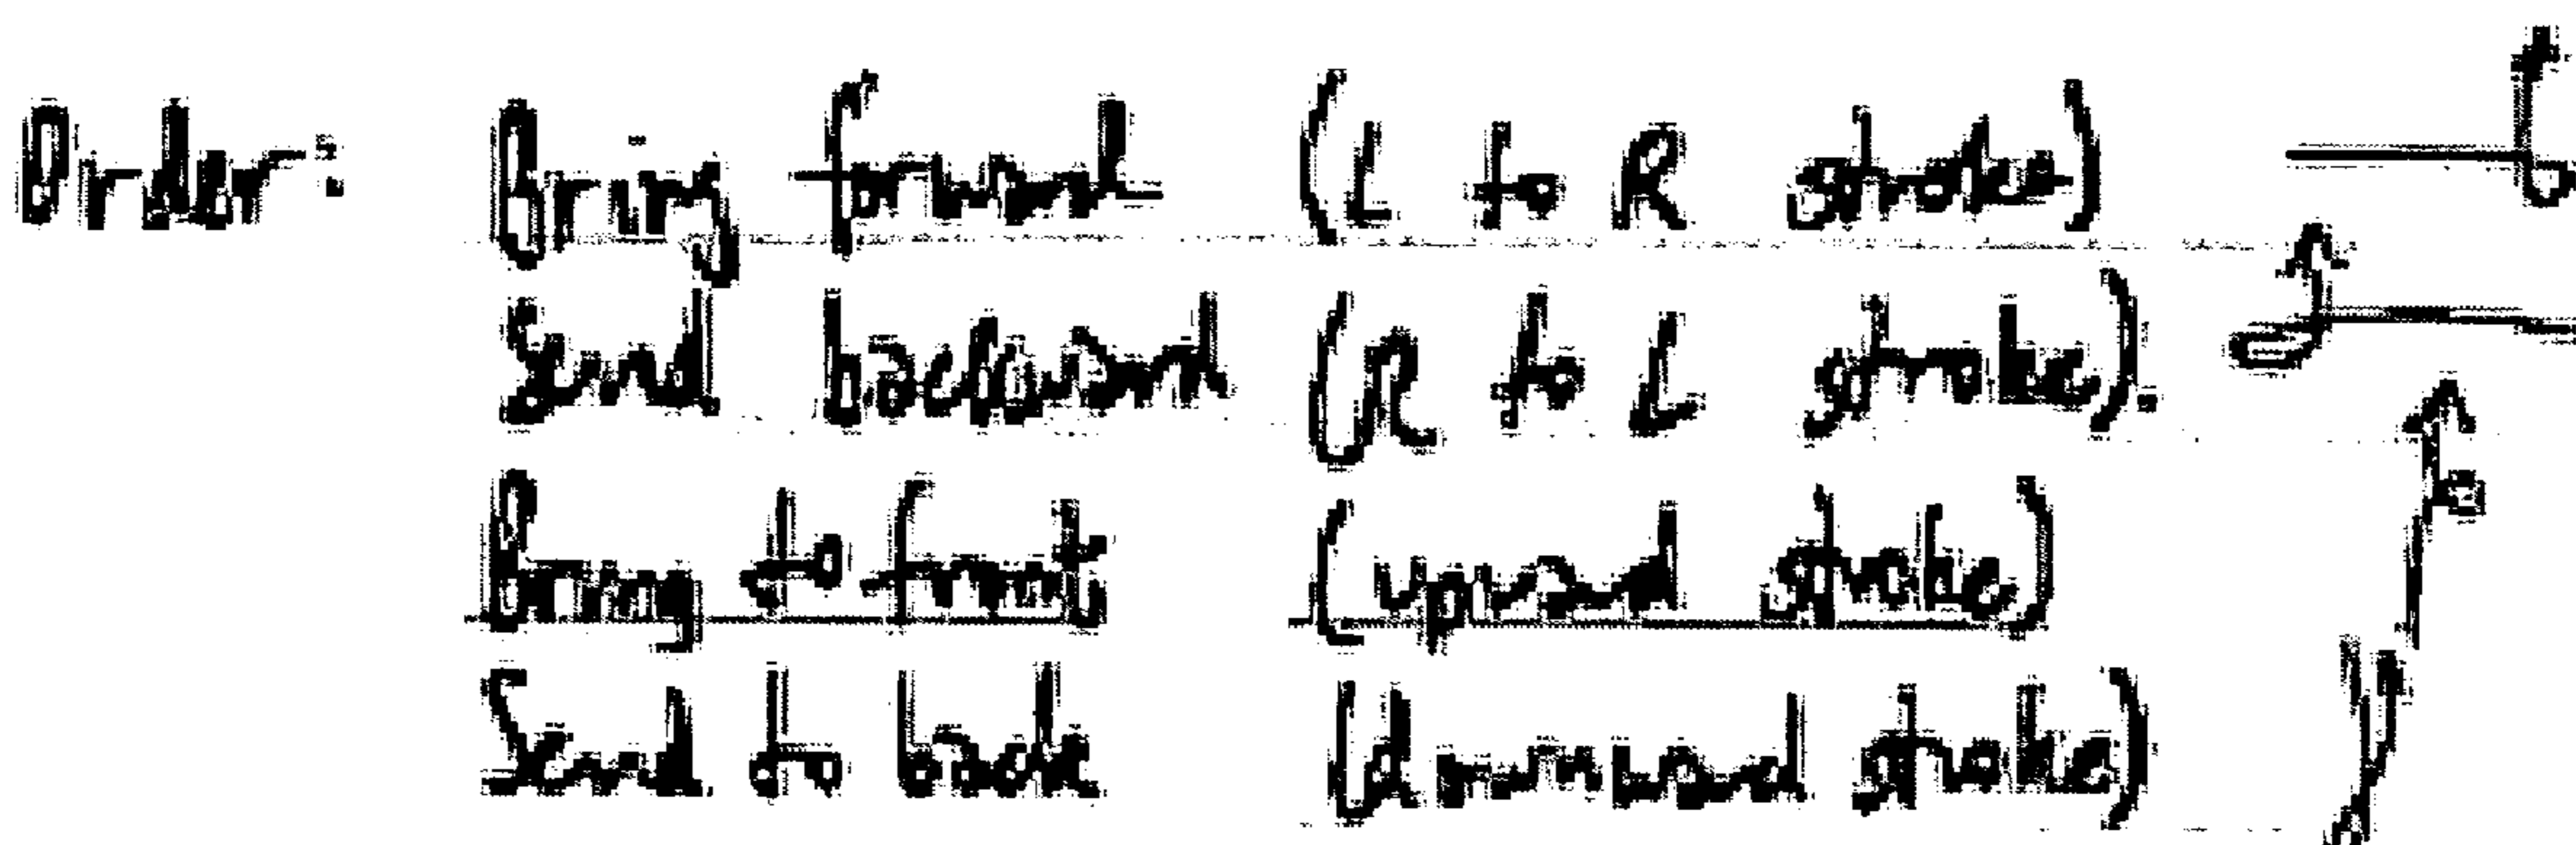 Order: bring forward (L to R stroke)
Send backward (R to L stroke).
bring to front (upward stroke)
Send to back (downward stroke)